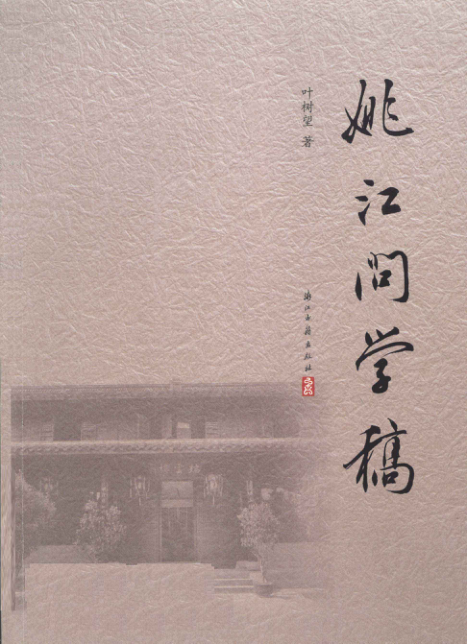 姚江問学稿
叶树望 著
浙江古籍出版社